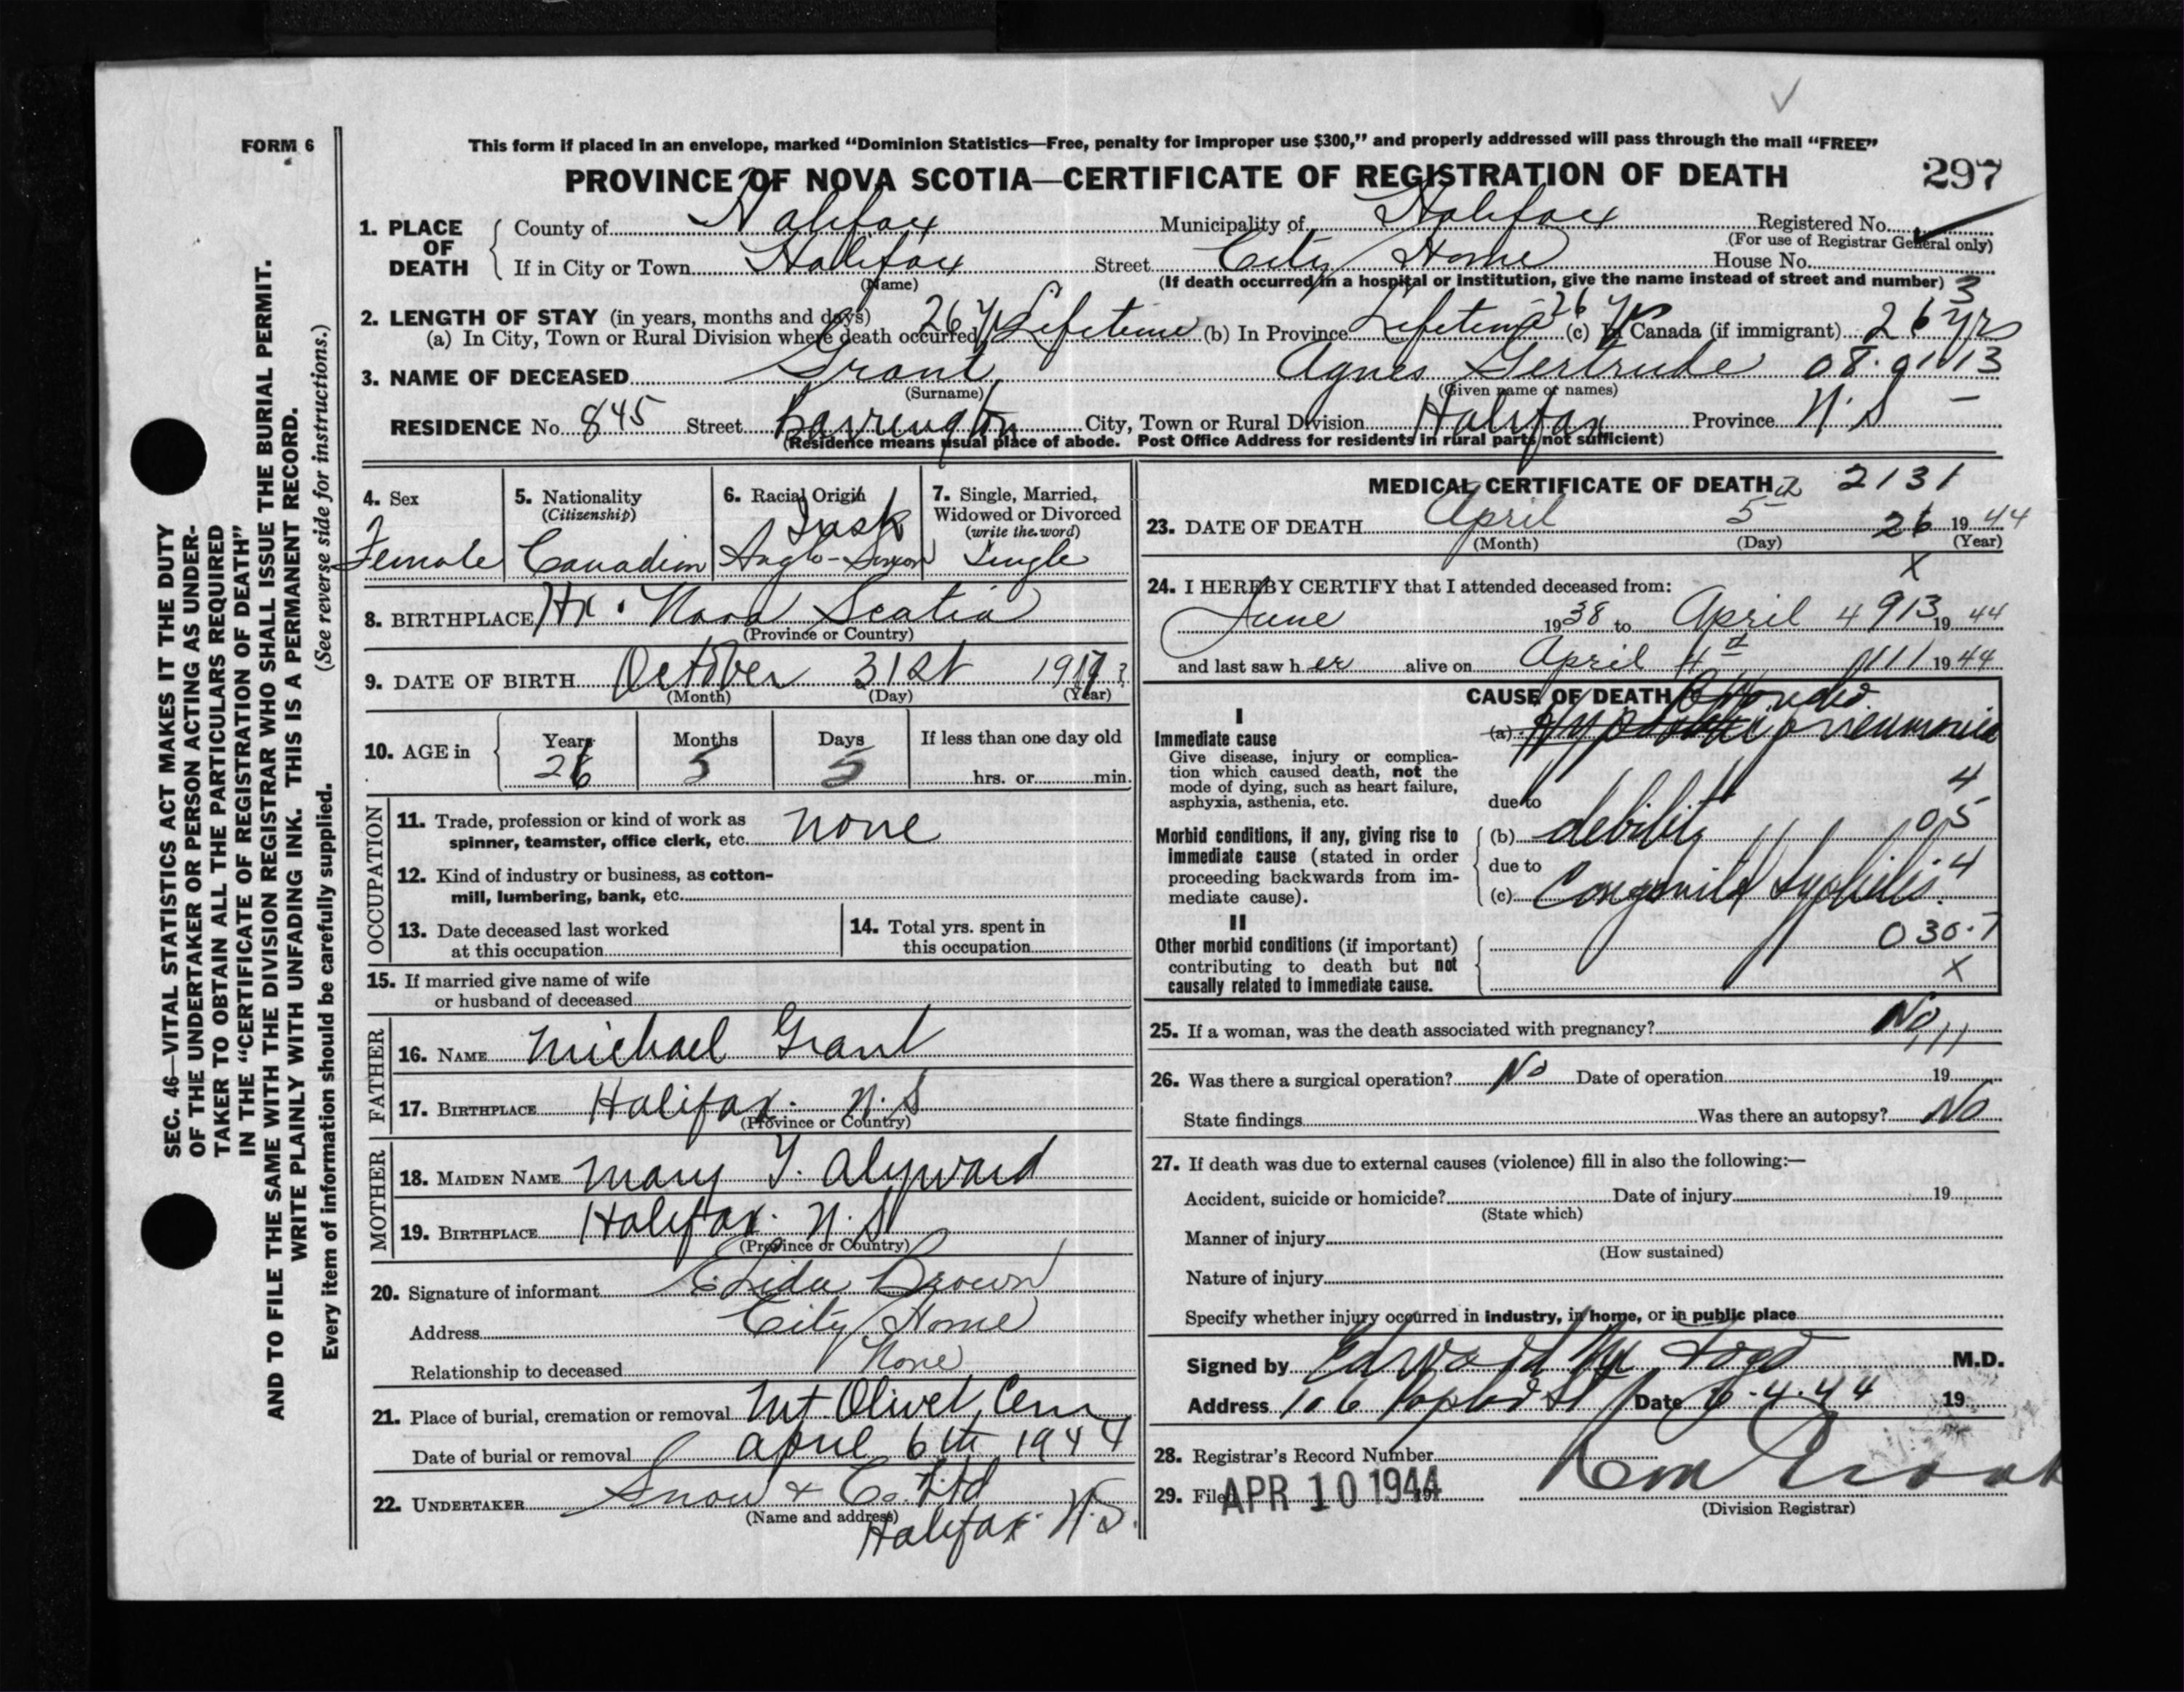 FORM 6
This form if placed in an envelope, marked “Dominion Statistics—Free, penalty for improper use $300,” and properly addressed will pass through the mail “FREE”
PROVINCE OF NOVA SCOTIA—CERTIFICATE OF REGISTRATION OF DEATH 297
1. PLACE OF DEATH County of Halifax Municipality of Halifax Registered No.
(For use of Registrar General only)
If in City or Town Halifax Street City Home House No.
(Name) (If death occurred in a hospital or institution, give the name instead of street and number) 3
2. LENGTH OF STAY (in years, months and days)
(a) In City, Town or Rural Division where death occurred 26 yrs Lifetime (b) In Province Lifetime 26 yrs (c) In Canada (if immigrant) 26 yrs
3. NAME OF DECEASED Grant, Agnes Gertrude 08.01.13
(Surname) (Given name or names)
RESIDENCE No. 845 Street Barrington City, Town or Rural Division Halifax Province N.S
(Residence means usual place of abode. Post Office Address for residents in rural parts not sufficient)
4. Sex Female
5. Nationality (Citizenship) Canadian
6. Racial Origin Irish Anglo-Saxon
7. Single, Married, Widowed or Divorced (write the word) Single
8. BIRTHPLACE Hx. Nova Scotia
(Province or Country)
9. DATE OF BIRTH October 31st 1917
(Month) (Day) (Year)
10. AGE in Years 26 Months 5 Days 5 If less than one day old
hrs. or min.
OCCUPATION
11. Trade, profession or kind of work as spinner, teamster, office clerk, etc. none
12. Kind of industry or business, as cotton-mill, lumbering, bank, etc.
13. Date deceased last worked at this occupation
14. Total yrs. spent in this occupation
15. If married give name of wife
or husband of deceased
FATHER
16. NAME Michael Grant
17. BIRTHPLACE Halifax. N.S
(Province or Country)
MOTHER
18. MAIDEN NAME Mary T. Alyward
19. BIRTHPLACE Halifax. N.S
(Province or Country)
20. Signature of informant Brown
Address City Home
Relationship to deceased None
21. Place of burial, cremation or removal Mt. Olivet Cem
Date of burial or removal April 6th 1944
22. UNDERTAKER Snow & Co. Ltd
(Name and address) Halifax. N.S.
MEDICAL CERTIFICATE OF DEATH 2131
23. DATE OF DEATH April 5 26 1944
(Month) (Day) (Year)
x
24. I HEREBY CERTIFY that I attended deceased from:
June 1938 to April 4 913 1944
and last saw her alive on April 4th 111 1944
CAUSE OF DEATH
I
Immediate cause
Give disease, injury or complication which caused death, not the mode of dying, such as heart failure, asphyxia, asthenia, etc.
(a) pneumonia
4
due to
Morbid conditions, if any, giving rise to immediate cause (stated in order proceeding backwards from immediate cause).
(b) debility 05
due to
(c) Congenital Syphilis. 4
II
Other morbid conditions (if important) contributing to death but not causally related to immediate cause.
030.7
x
25. If a woman, was the death associated with pregnancy? No
111
26. Was there a surgical operation? No Date of operation 19
State findings Was there an autopsy? No
27. If death was due to external causes (violence) fill in also the following:—
Accident, suicide or homicide? Date of injury 19
(State which)
Manner of injury
(How sustained)
Nature of injury
Specify whether injury occurred in industry, in home, or in public place
Signed by Edward M.D.
Address 106 St Date 6-4-44 19
28. Registrar's Record Number
29. Filed APR 10 1944
(Division Registrar)
SEC. 46—VITAL STATISTICS ACT MAKES IT THE DUTY
OF THE UNDERTAKER OR PERSON ACTING AS UNDER-
TAKER TO OBTAIN ALL THE PARTICULARS REQUIRED
IN THE “CERTIFICATE OF REGISTRATION OF DEATH”
AND TO FILE THE SAME WITH THE DIVISION REGISTRAR WHO SHALL ISSUE THE BURIAL PERMIT.
WRITE PLAINLY WITH UNFADING INK. THIS IS A PERMANENT RECORD.
Every item of information should be carefully supplied. (See reverse side for instructions.)